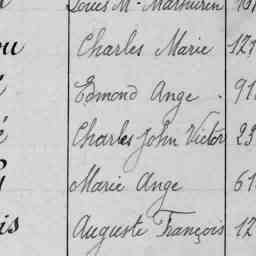 Louis M. Mathurin
ou Charles Marie 121
Edmond Ange . 91
é Charles John Victor 23
Marie Ange 61
is Auguste François 12